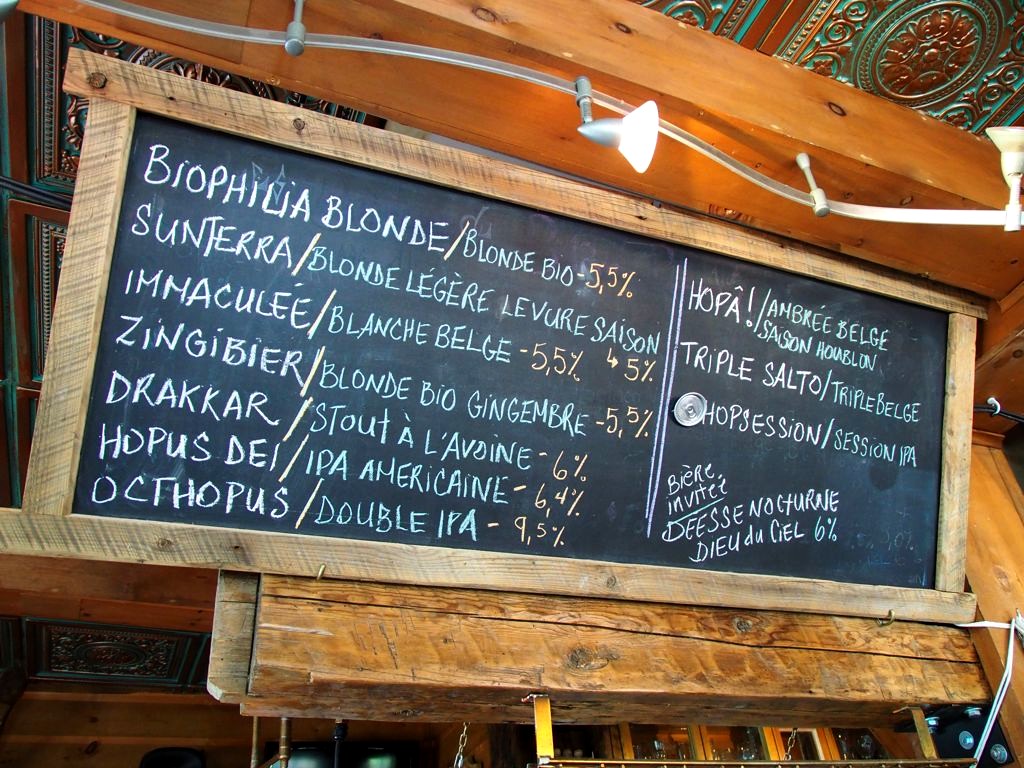 BIOPHILIA BLONDE/BLONDE BIO-5,5%
SUNTERRA/BLONDE LÉGÈRE LEVURE SAISON
↳ 5%
IMMACULEÉ/BLANCHE BELGE - 5,5%
ZINGIBIER/BLONDE BIO GINGEMBRE -5,5%
DRAKKAR/STOUT À L'AVOINE - 6%
HOPUS DEI/IPA AMERICAINE - 6,4%
OCTHOPUS/DOUBLE IPA - 9,5%
HOPÂ!/AMBRÉE BELGE
SAISON HOUBLON
TRIPLE SALTO/TRIPLE BELGE
HOPSESSION/SESSION IPA
Bière
invitée
DÉESSE NOCTURNE
DIEU du CIEL 6%